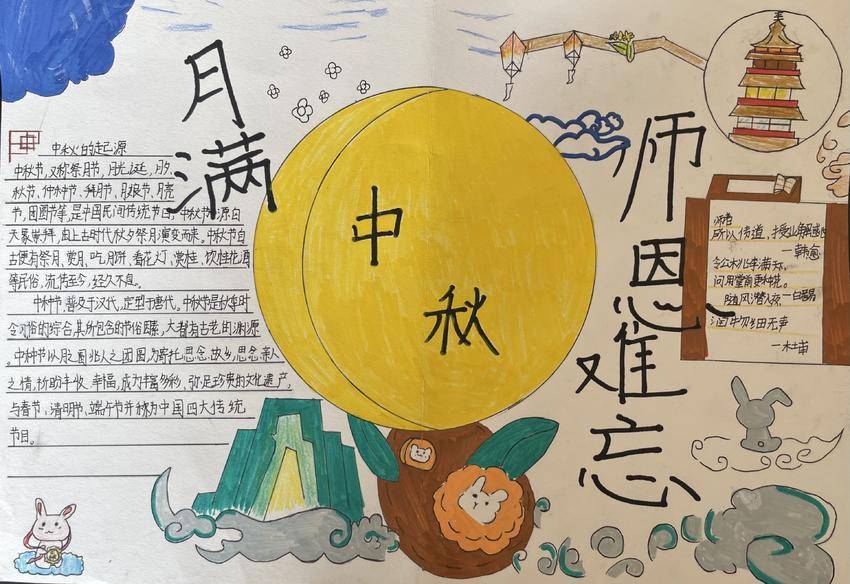 月满
中秋
师恩难忘
中秋的起源
中秋节,又称祭月节、月光诞、月夕
秋节、仲秋节、拜月节、月娘节、月亮
节,团圆节等,是中国民间传统节日。中秋节源自
天象崇拜,由上古时代秋夕祭月演变而来。中秋节自
古便有祭月、赏月、吃月饼、看花灯、赏桂、饮桂花酒
等民俗,流传至今,经久不息。
中秋节,普及于汉代,定型于唐代。中秋节是秋季时
令习俗的综合,其所包含的节俗因素,大都有古老的渊源
。中秋节以月圆兆人之团圆,为寄托思念故乡,思念亲人
之情,祈盼丰收、幸福,成为丰富多彩、弥足珍贵的文化遗产,
与春节、清明节、端午节并称为中国四大传统
节日。
师者
所以传道,授业解惑
一韩愈
令公桃李满天
何用堂前更种花。
一白居易
随风潜入夜
润物细无声
一杜甫